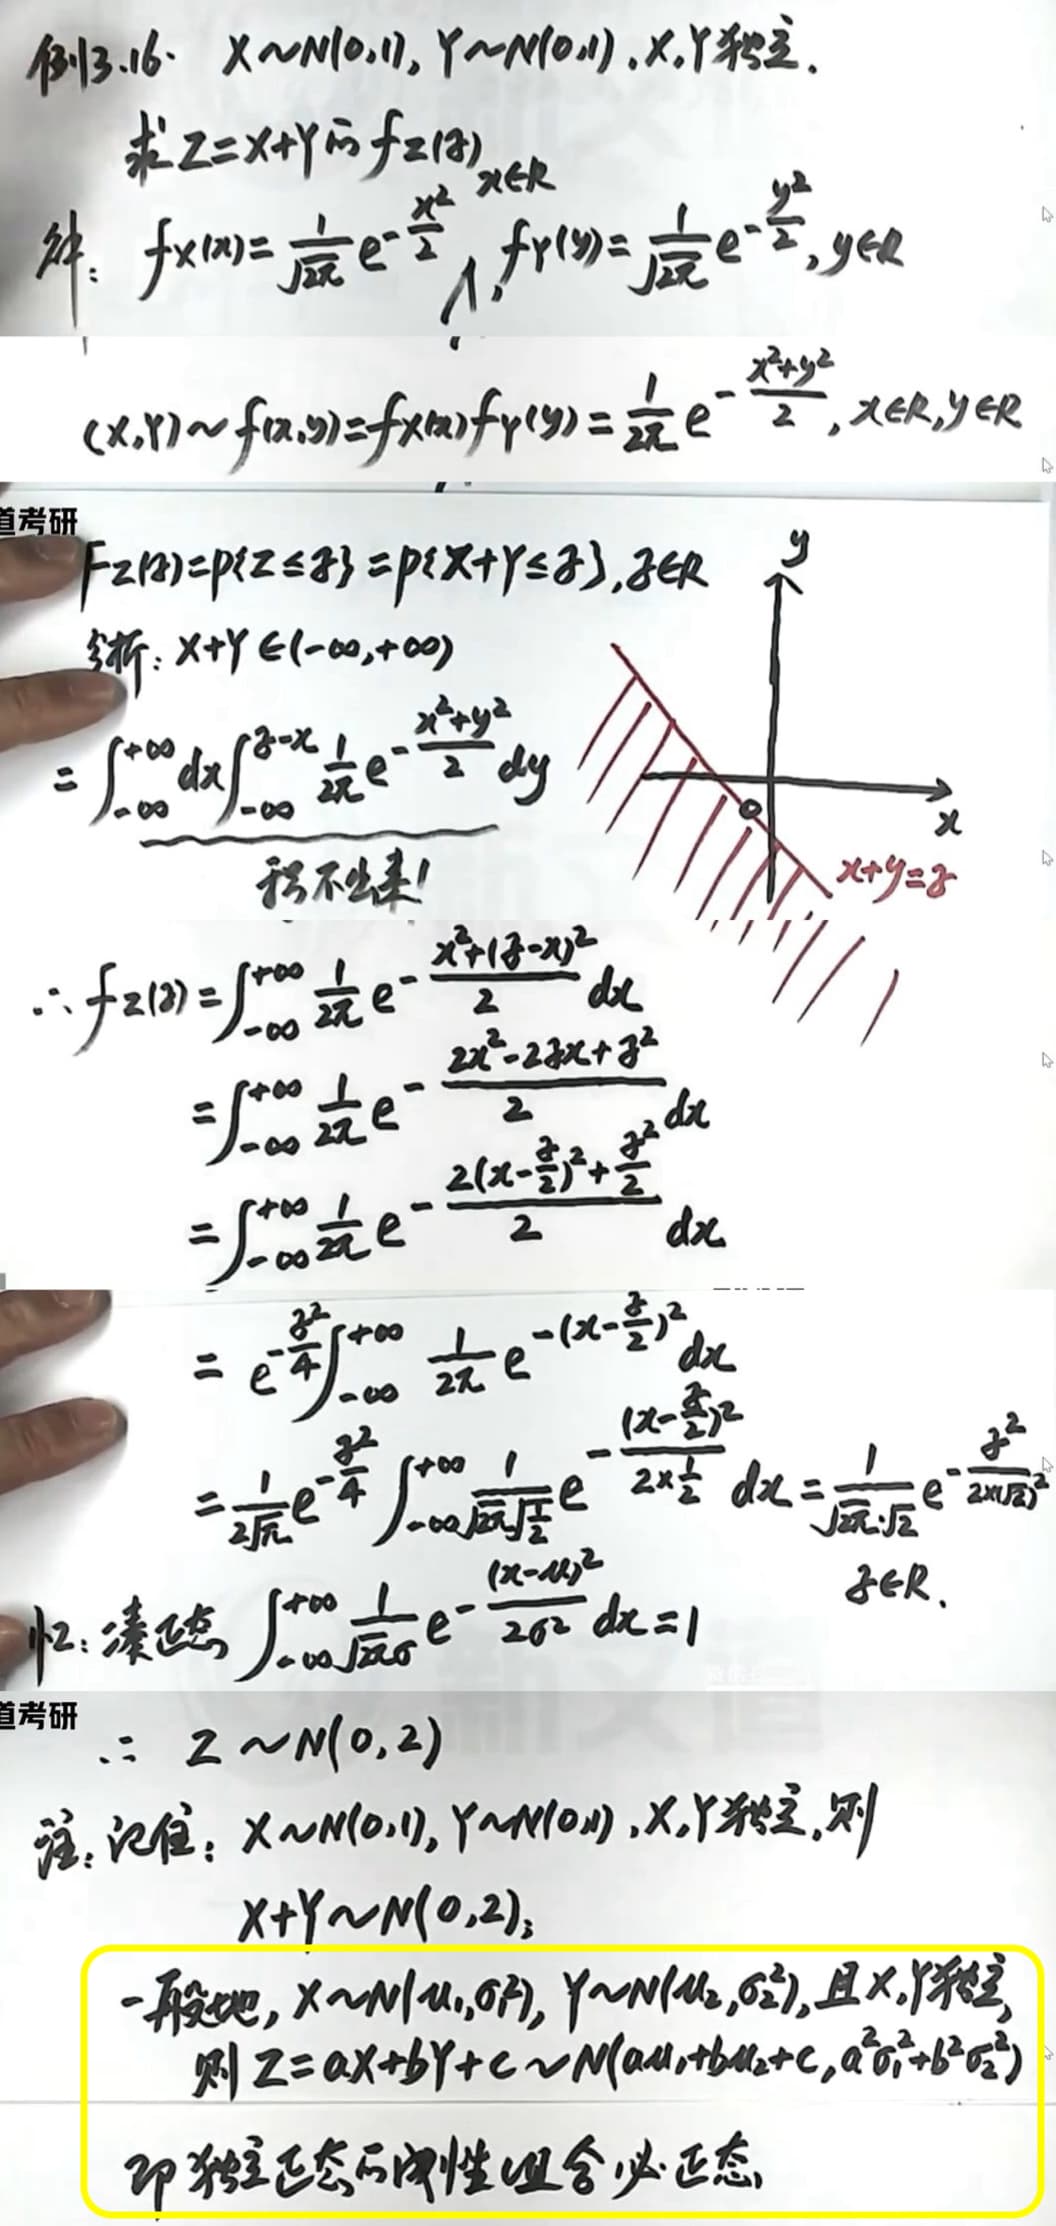 例3.16. X~N(0,1), Y~N(0,1), X,Y独立.
求Z=X+Y的 f_Z(z)
解: f_X(x)=\frac{1}{\sqrt{2π}}e^{-\frac{x²}{2}}, x∈R, f_Y(y)=\frac{1}{\sqrt{2π}}e^{-\frac{y²}{2}}, y∈R
(X,Y)~f(x,y)=f_X(x)f_Y(y)=\frac{1}{2π}e^{-\frac{x²+y²}{2}}, x∈R, y∈R
道考研
F_Z(z)=P{Z≤z}=P{X+Y≤z}, z∈R
分析: X+Y∈(-∞,+∞)
=∫_{-∞}^{+∞}dx∫_{-∞}^{z-x}\frac{1}{2π}e^{-\frac{x²+y²}{2}}dy
积不出来!
y
O
x
x+y=z
∴ f_Z(z)=∫_{-∞}^{+∞}\frac{1}{2π}e^{-\frac{x²+(z-x)²}{2}}dx
=∫_{-∞}^{+∞}\frac{1}{2π}e^{-\frac{2x²-2zx+z²}{2}}dx
=∫_{-∞}^{+∞}\frac{1}{2π}e^{-\frac{2(x-\frac{z}{2})²+\frac{z²}{2}}{2}}dx
=e^{-\frac{z²}{4}}∫_{-∞}^{+∞}\frac{1}{2π}e^{-(x-\frac{z}{2})²}dx
=\frac{1}{2\sqrt{π}}e^{-\frac{z²}{4}}∫_{-∞}^{+∞}\frac{1}{\sqrt{2π}\sqrt{\frac{1}{2}}}e^{-\frac{(x-\frac{z}{2})²}{2×\frac{1}{2}}}dx=\frac{1}{\sqrt{2π}·\sqrt{2}}e^{-\frac{z²}{2×(\sqrt{2})²}}
z∈R.
忆: 凑正态 ∫_{-∞}^{+∞}\frac{1}{\sqrt{2π}σ}e^{-\frac{(x-μ)²}{2σ²}}dx=1
道考研
∴ Z~N(0,2)
注: 记住: X~N(0,1), Y~N(0,1), X,Y独立, 则
X+Y~N(0,2);
一般地, X~N(μ₁,σ₁²), Y~N(μ₂,σ₂²), 且X,Y独立,
则 Z=aX+bY+c~N(aμ₁+bμ₂+c, a²σ₁²+b²σ₂²)
即独立正态的线性组合必正态